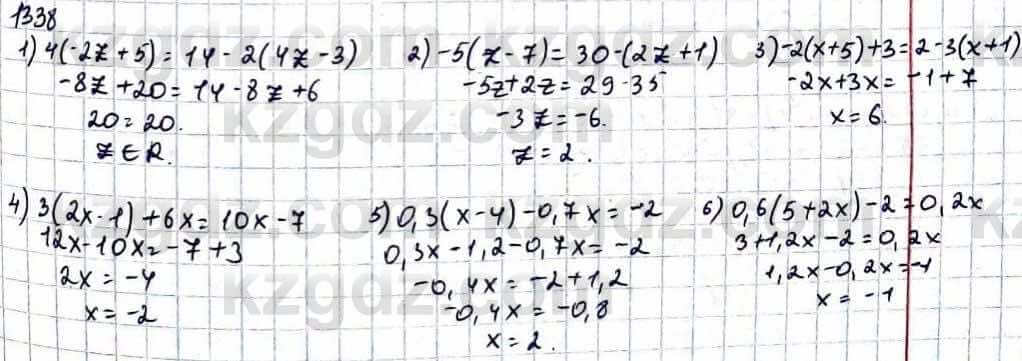 1338
1) 4(-2z+5) = 14 - 2(4z-3)
-8z+20 = 14-8z+6
20=20.
z∈R.
2) -5(z-7) = 30-(2z+1)
-5z+2z = 29-35
-3z=-6.
z=2.
3) -2(x+5)+3=2-3(x+1)
-2x+3x= -1+7
x=6.
4) 3(2x-1)+6x=10x-7
12x-10x=-7+3
2x=-4
x=-2
5) 0,3(x-4)-0,7x=-2
0,3x-1,2-0,7x=-2
-0,4x=-2+1,2
-0,4x=-0,8
x=2.
6) 0,6(5+2x)-2=0,2x
3+1,2x-2=0,2x
1,2x-0,2x=-1
x=-1
kzgdz.com
kzgdz.com
kzgdz.com